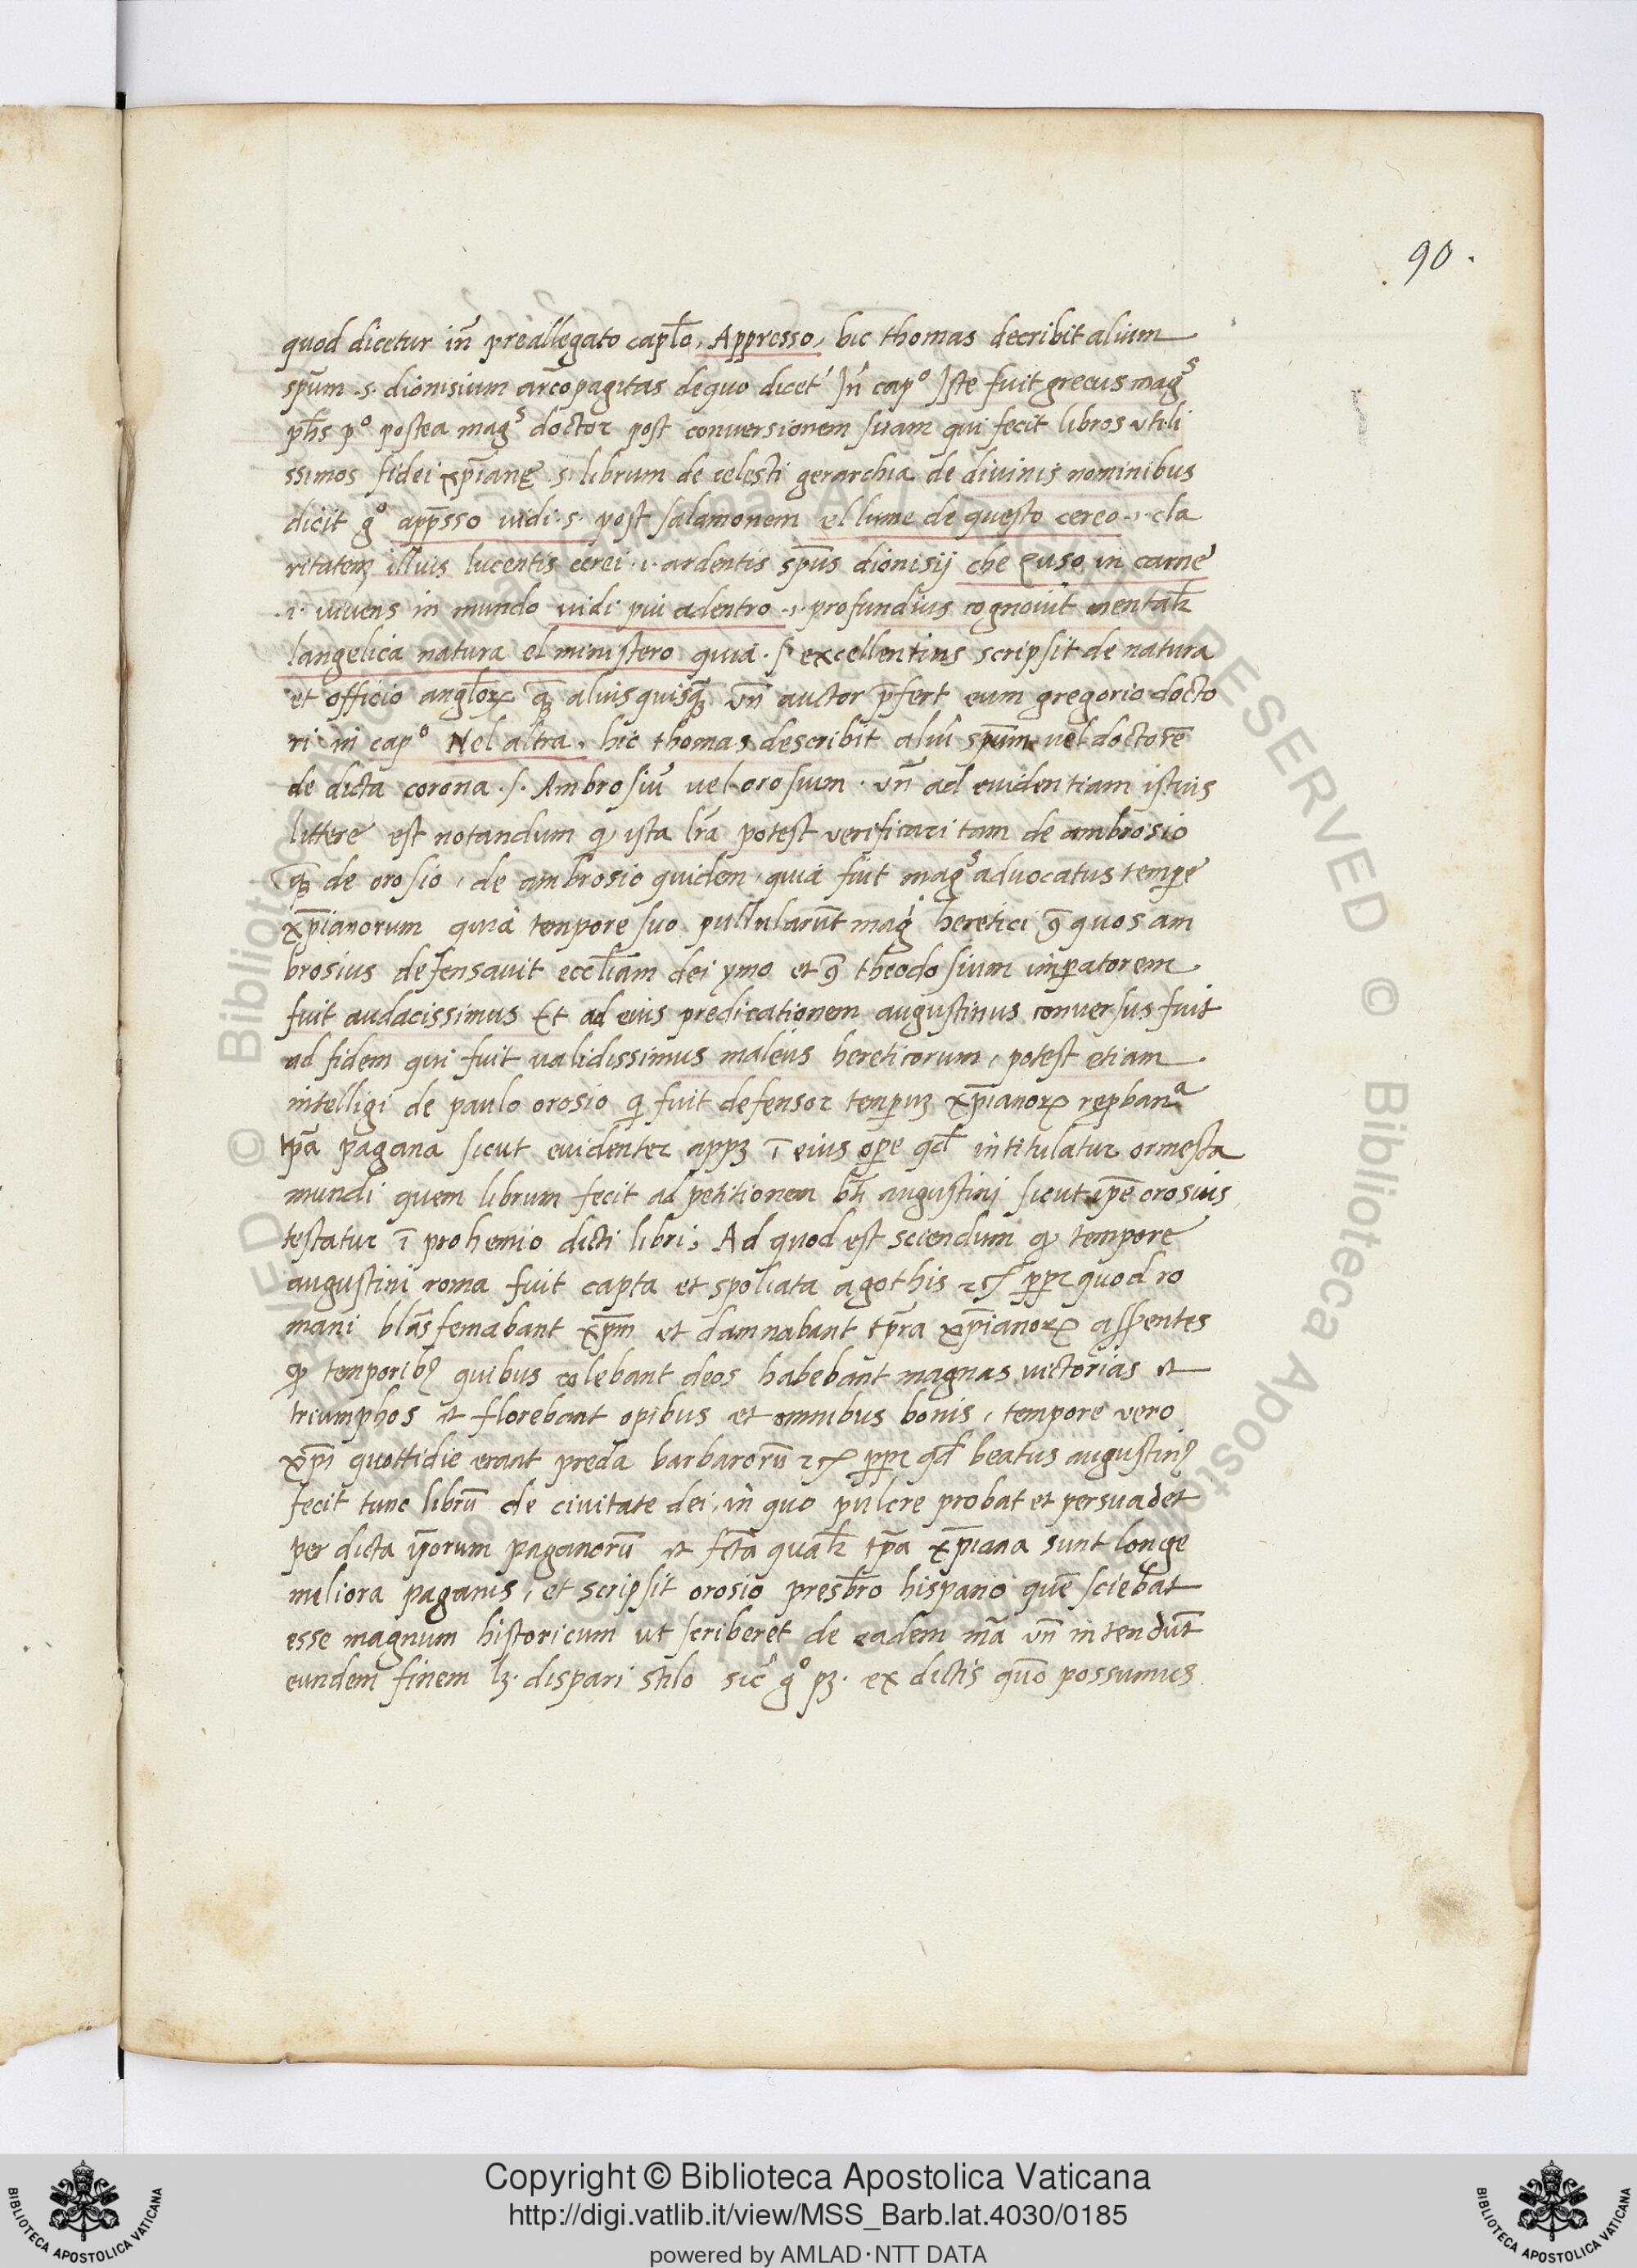 90.
quod dicetur in̄ preallegato capl̄o, Appresso, hic thomas decribit alium
sp̄um .s. dionisium arc̄opagitas dequo dicet᷑ Jn̄ cap° Jste fuit grecus magˢ
ph̄s p° postea magˢ doctor post conversionem suam qui fecit libros utili
ssimos fidei xp̄iane .s. librum de celesti gerarchia de divinis nominibus
dicit g° app̄sso vidi .s. post salamonem el lume de questo cereo .i. cla
ritatem illius lucentis cerei .i. ardentis sp̄us dionisij che quso in carne
.i. vivens in mundo vidi piu adentro .i. profundius cognovit mentalr̄
langelica natura el ministero quia .s. excellentius scripsit de natura
et officio angl̄oꝝ qꝫ̄ aliusquisqꝫ̄ vn̄ auctor p̄fert eum gregorio docto
ri in cap° Nel altra, hic thomas describit aliū sp̄um vel doctorē
de dicta corona .s. Ambrosiū vel orosium. vn̄ ad evidentiam istius
littere est notandum ꝙ ista lr̄a potest verificari tam de ambrosio
qꝫ̄ de orosio, de ambrosio quidem, quia fuit magˢ advocatus temꝑe
xp̄ianorum quia tempore suo pullularūt magⁱ heretici ꝯ̄ quos am
brosius defensavit eccl̄iam dei ymo et ꝯ̄ theodosium imꝑatorem
fuit audacissimus Et ad eius predicationem augustinus conversus fuit
ad fidem qui fuit validissimus maleus hereticorum, potest etiam
intelligi de paulo orosio qi fuit defensor temꝑuꝫ xp̄ianoꝝ reꝓbanᵃ
tp̄a pagana sicut evidenter appꝫ ī eius oꝑe qd̄ intitulatur ormesta
mundi quem librum fecit ad petitionem bt̄i augustinj sicut ip̄e orosius
testatur ī prohemio dicti libri, Ad quod est sciendum ꝙ tempore
augustini roma fuit capta et spoliata agothis ⁊c̄ ꝓpꝛ quod ro
mani blasfemabant xp̄m et damnabant tp̄ra xp̄ianoꝝ asserentes
ꝙ temporibꝰ quibus colebant deos habebant magnas victorias et
triumphos et florebant opibus et omnibus bonis, tempore vero
xp̄i quottidie erant preda barbarorū ⁊c̄ ꝓpꝛ qd̄ beatus augustinꝰ
fecit tunc librū de civitate dei, in quo pulcre probat et persuadet
per dicta ip̄orum paganorū et fct̄a qualr̄ tp̄a xp̄iana sunt longe
meliora paganis, et scripsit orosio presbr̄o hispano quē sciebat
esse magnum historicum ut scriberet de eadem mā vn̄ intendūt
eundem finem lꝫ. dispari stilo sic g° pꝫ. ex dictis quō possumus
Copyright © Biblioteca Apostolica Vaticana
http://digi.vatlib.it/view/MSS_Barb.lat.4030/0185
powered by AMLAD·NTT DATA
BIBLIOTECA APOSTOLICA VATICANA
BIBLIOTECA APOSTOLICA VATICANA